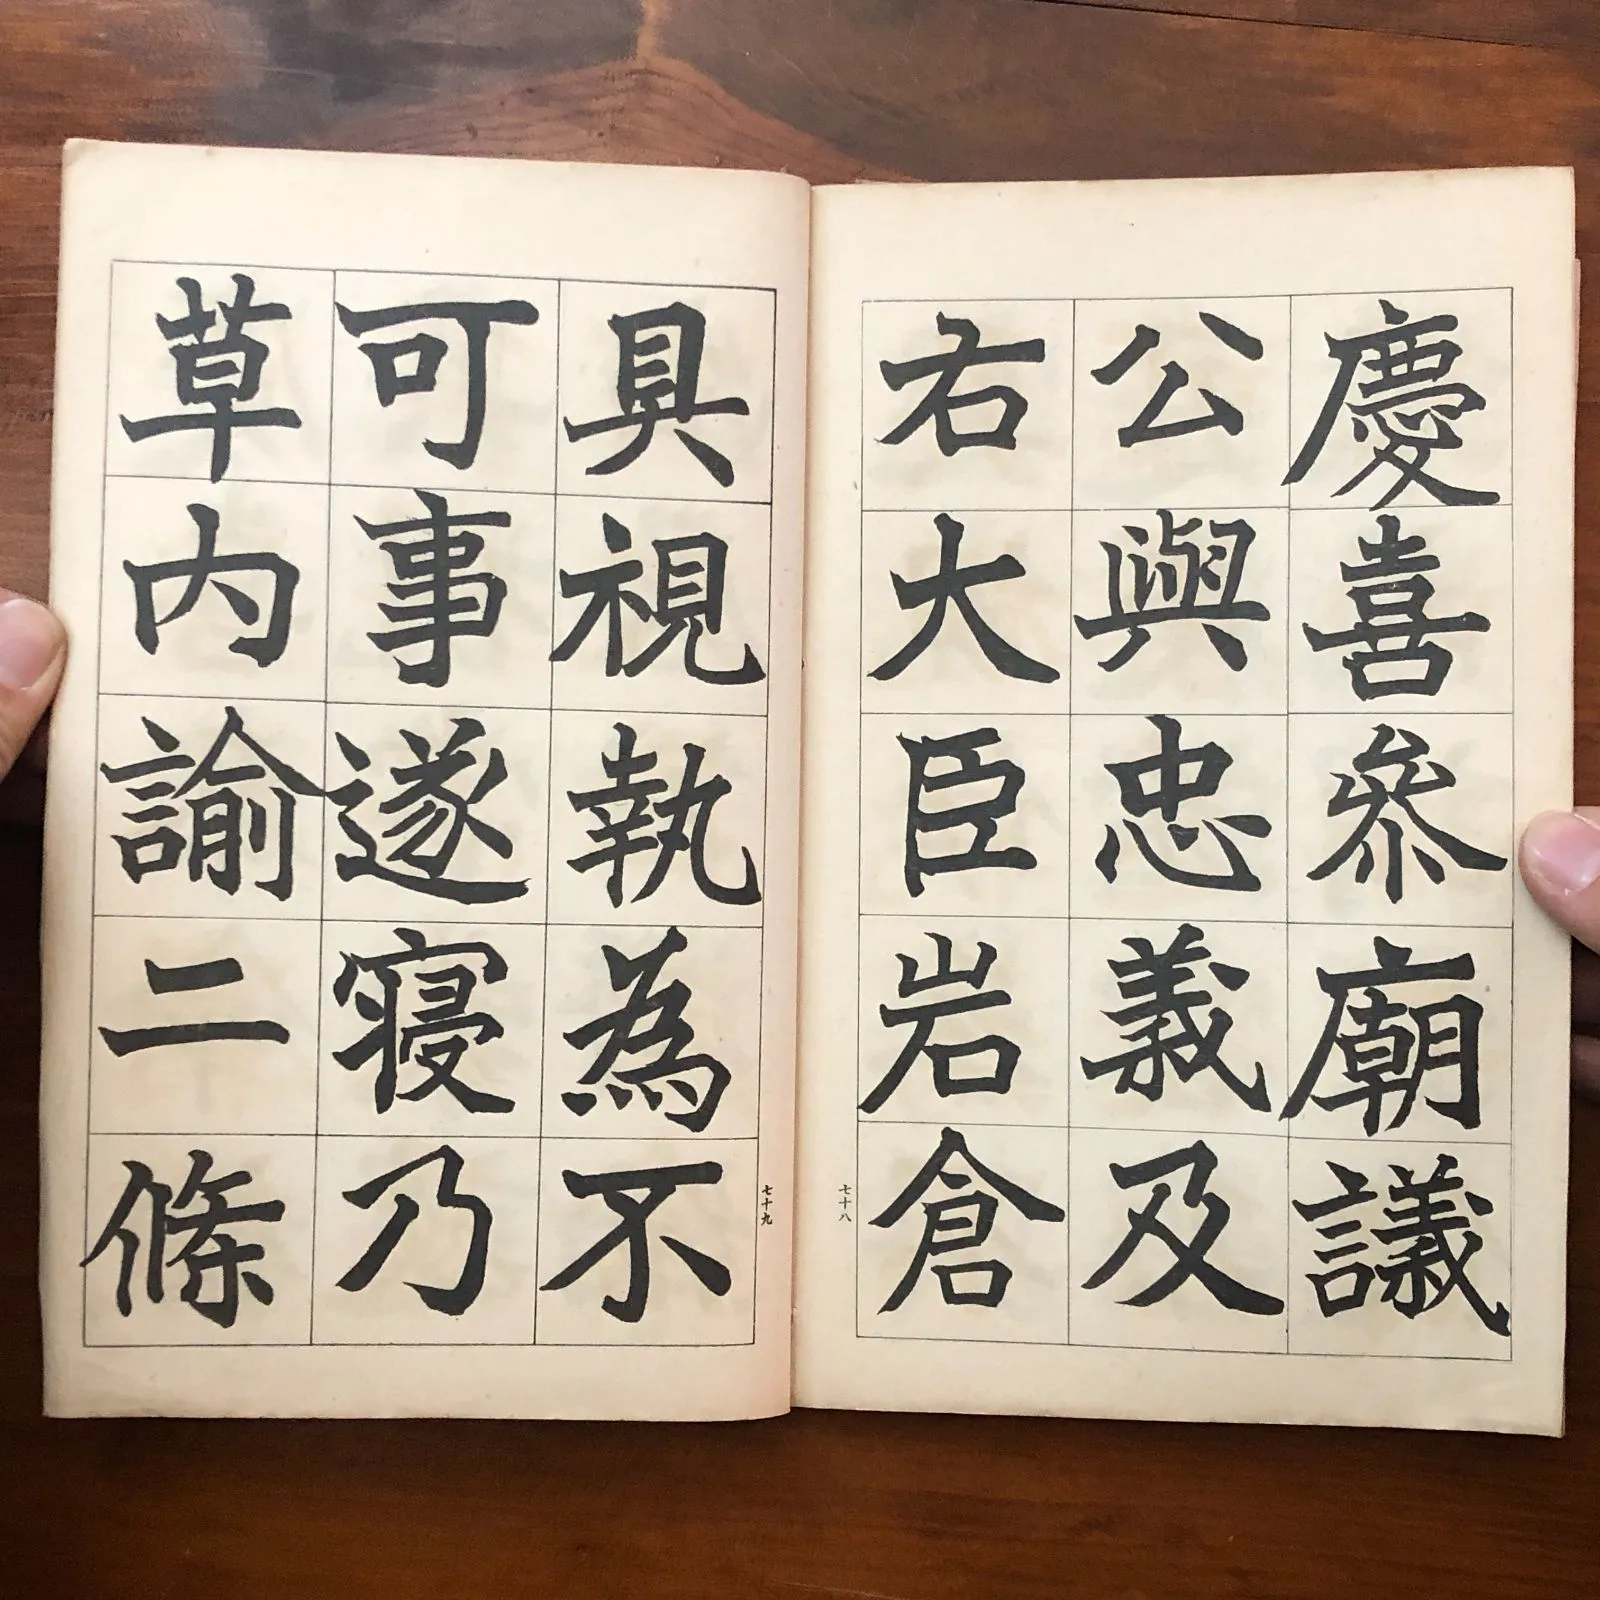 慶喜參廟議
公與忠義及
右大臣岩倉
七十八
具視執為不
可事遂寑乃
草內諭二條
七十九